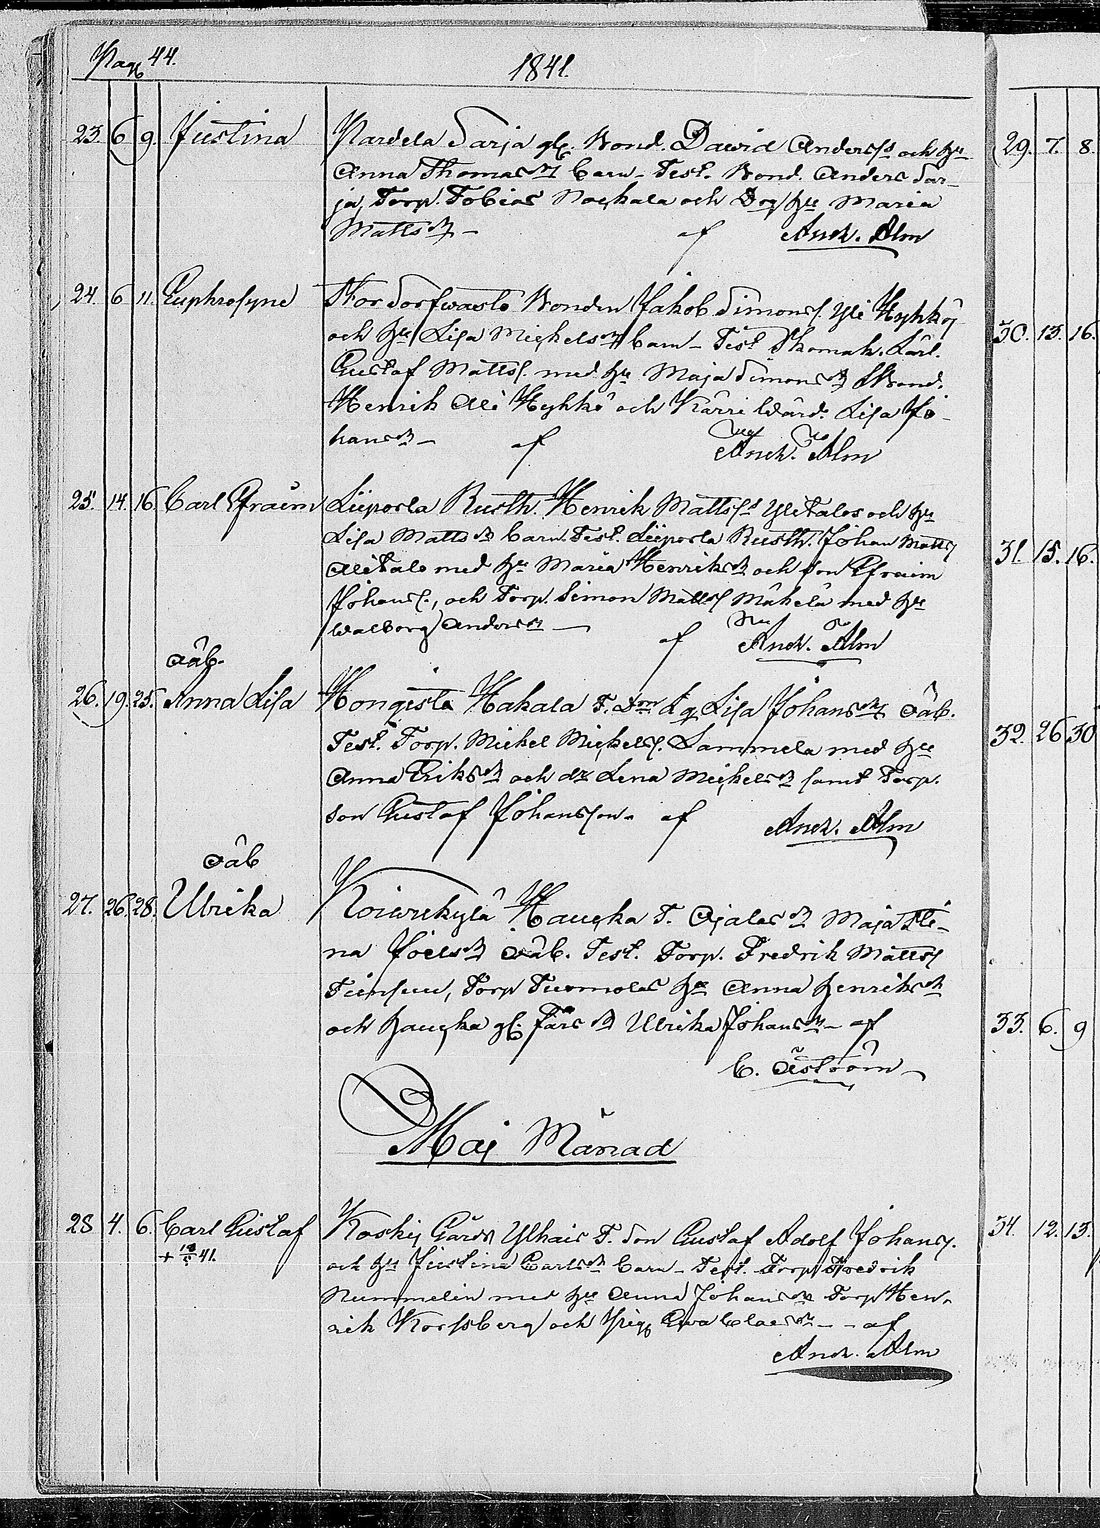 Pag 44.
1841.
23. 6 9. Justina Pardela Sarja gl. Bond. David Anderss. och hu
Anna Thomasdr Barn - Test. Bond. Anders Sar-
ja, Torp. Tobias Nochala och Drg hu Maria
Mattsdr - af Andr. Alm
24. 6 11. Euphrosyne Bonden Jakob Simons. Yli Hykkö
och hu Lisa Michelsdr Barn - Test
Gustaf Mattss. med hu Maja Simonsdr Bond.
Henrik Ali Hykkö och Kärri Wärd. Lisa Jo-
hansdr - af Andr. Alm
25. 14. 16. Carl Efraim Liipola Rusth. Henrik Mattss Ylitalos och hu
Lisa Mattsdr Barn. Test. Liipola Rusth. Johan Matts
Alitalo med hu Maria Henriksdr och son Efraim
Johans., och Torp. Simon Matts Mäkelä med hu
Walborg Andersdr - af Andr. Alm
oäb.
26. 19. 25. Anna Lisa Hongisto Hakala T. Lisa Johansdr oäb.
Test. Torp. Michel Michels. Lammela med hu
Anna Eriksdr och dr Lena Michelsdr samt Torp.
son Gustaf Johansson. af Andr. Alm
oäb
27. 26. 28. Ulrika Koiwukylä Haugka T. Ojalas dr Maja Ste-
na Joelsdr oäb. Test. Torp. Fredrik Matts
Torp Tuomolas hu Anna Henriksdr
och Haugka gl. Färs dr Ulrika Johansdr - af
C. Åström
Maj Månad
28 4. 6. Carl Gustaf Koskis Gårds Ylhais T. son Gustaf Adolf Johans.
+ 18/5 41. och hu Justina Carlsdr Barn - Test. Torp Fredrik
Nummelin med hu Anna Johansdr Torp Hen-
rik Korssberg och Pig. Ewa Claesdr - - af
Andr. Alm
29. 7. 8.
30. 13. 16.
31. 15. 16.
32. 26 30
33. 6. 9
34. 12. 13.